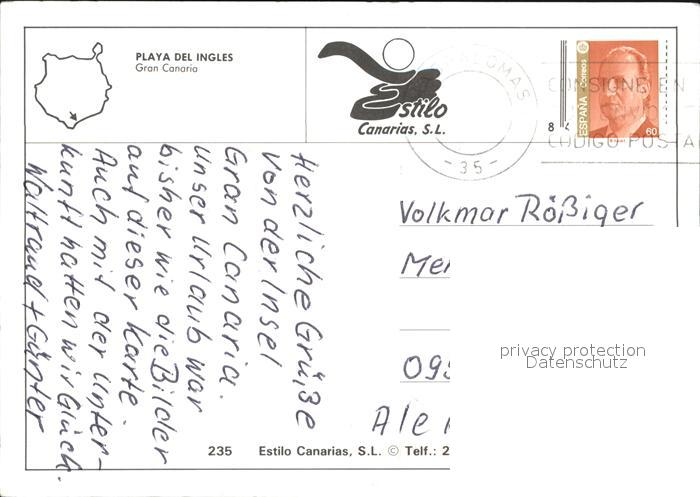 PLAYA DEL INGLES
Gran Canaria
Estilo
Canarias, S.L.
ESPAÑA
Correos
60
CONSIGNE EN
CODIGO POSTA
-35-
Herzliche Grüße
von der Insel
Gran Canaria.
Unser Urlaub war
bisher wie die Bilder
auf dieser Karte.
Auch mit der Unter-
kunft hatten wir Glück.
Waltraud + Günter
Volkmar Rößiger
privacy protection
Datenschutz
235 Estilo Canarias, S.L. © Telf.: 2